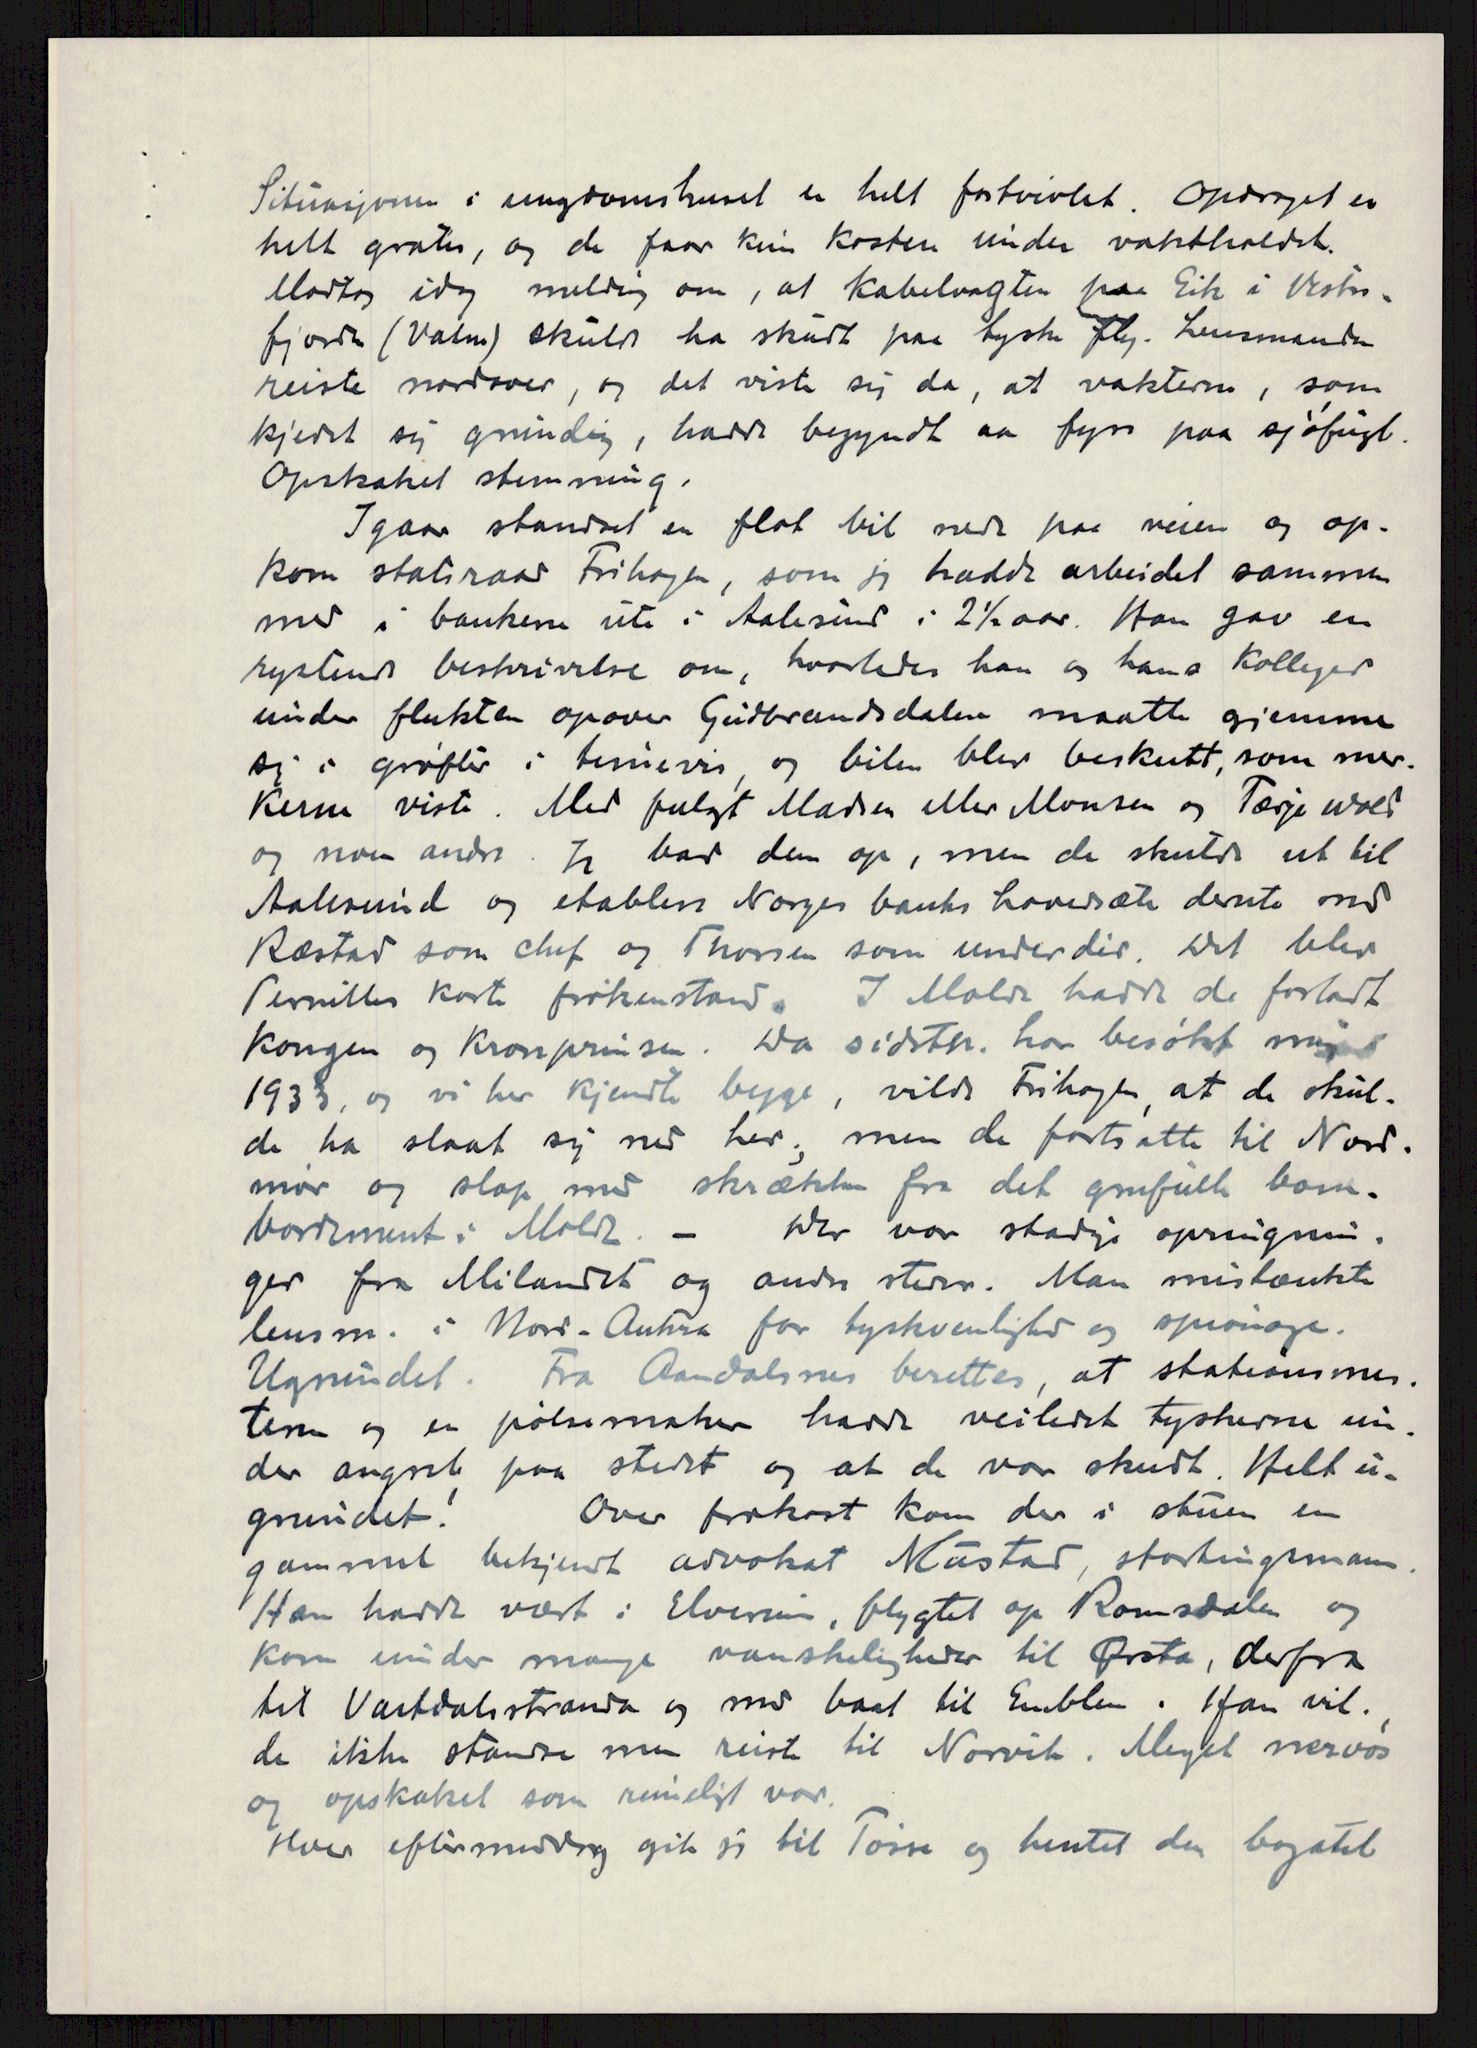 Situasjonen i ungdomshuset er helt fortvivlet. Opdraget er
helt gratis, og de faar kun kosten under vaktholdet.
Modtog idag melding om, at kabelvagten paa Eik i Vestre-
fjorden (Vatne) skulde ha skudt paa tyske fly. Lensmanden
reiste nordover, og det viste sig da, at vakterne, som
kjedet sig grundig, hadde begyndt aa fyre paa sjøfugl.
Opskaket stemning.
Igaar standset en flot bil nede paa veien og op-
kom statsraad Frihagen, som jeg hadde arbeidet sammen
med i bankene ute i Aalesund i 2½ aar. Han gav en
rystende beskrivelse om, hvorledes han og hans kolleger
under flukten opover Gudbrandsdalen maatte gjemme
sig i grøfter i timevis, og bilen blev beskutt, som mer-
kerne viste. Med fulgt Madsen eller Monsen og Terje Wold
og noen andre. Jeg bad dem op, men de skulde ut til
Aalesund og etablere Norges banks hovedsæte derute med
Ræstad som chef og Thorsen som underdir. Det blev
Pernilles korte frøkenstand. I Molde hadde de forladt
Kongen og Kronprinsen. Da sidstn. har besøkt mig
1933, og vi her kjendte begge, vilde Frihagen, at de skul-
de ha slaat sig ned her, men de fortsatte til Nord-
mør og slap med skrækken fra det grufulle bom-
bardement i Molde. - Der var stadige opringnin-
ger fra Milandet og andre steder. Man mistænkte
lensm. i Nord-Aukra for tyskvenlighed og spionage.
Ugrundet. Fra Aandalsnes berettes, at stationsmes-
teren og en pølsemaker hadde veiledet tyskerne un-
der angrep paa stedet og at de var skudt. Helt u-
grundet! Over frokost kom der i stuen en
gammel bekjendt advokat Mustad, stortingsmann.
Han hadde vært i Elverum, flygtet op Romsdalen og
kom under mange vanskeligheder til Ørsta, derfra
til Vartdalsstranda og med baat til Emblem. Han vil-
de ikke standse men reiste til Norvik. Meget nervøs
og opskaket som rimeligt var.
Hver eftermiddag gik jeg til Tosse og hentet den